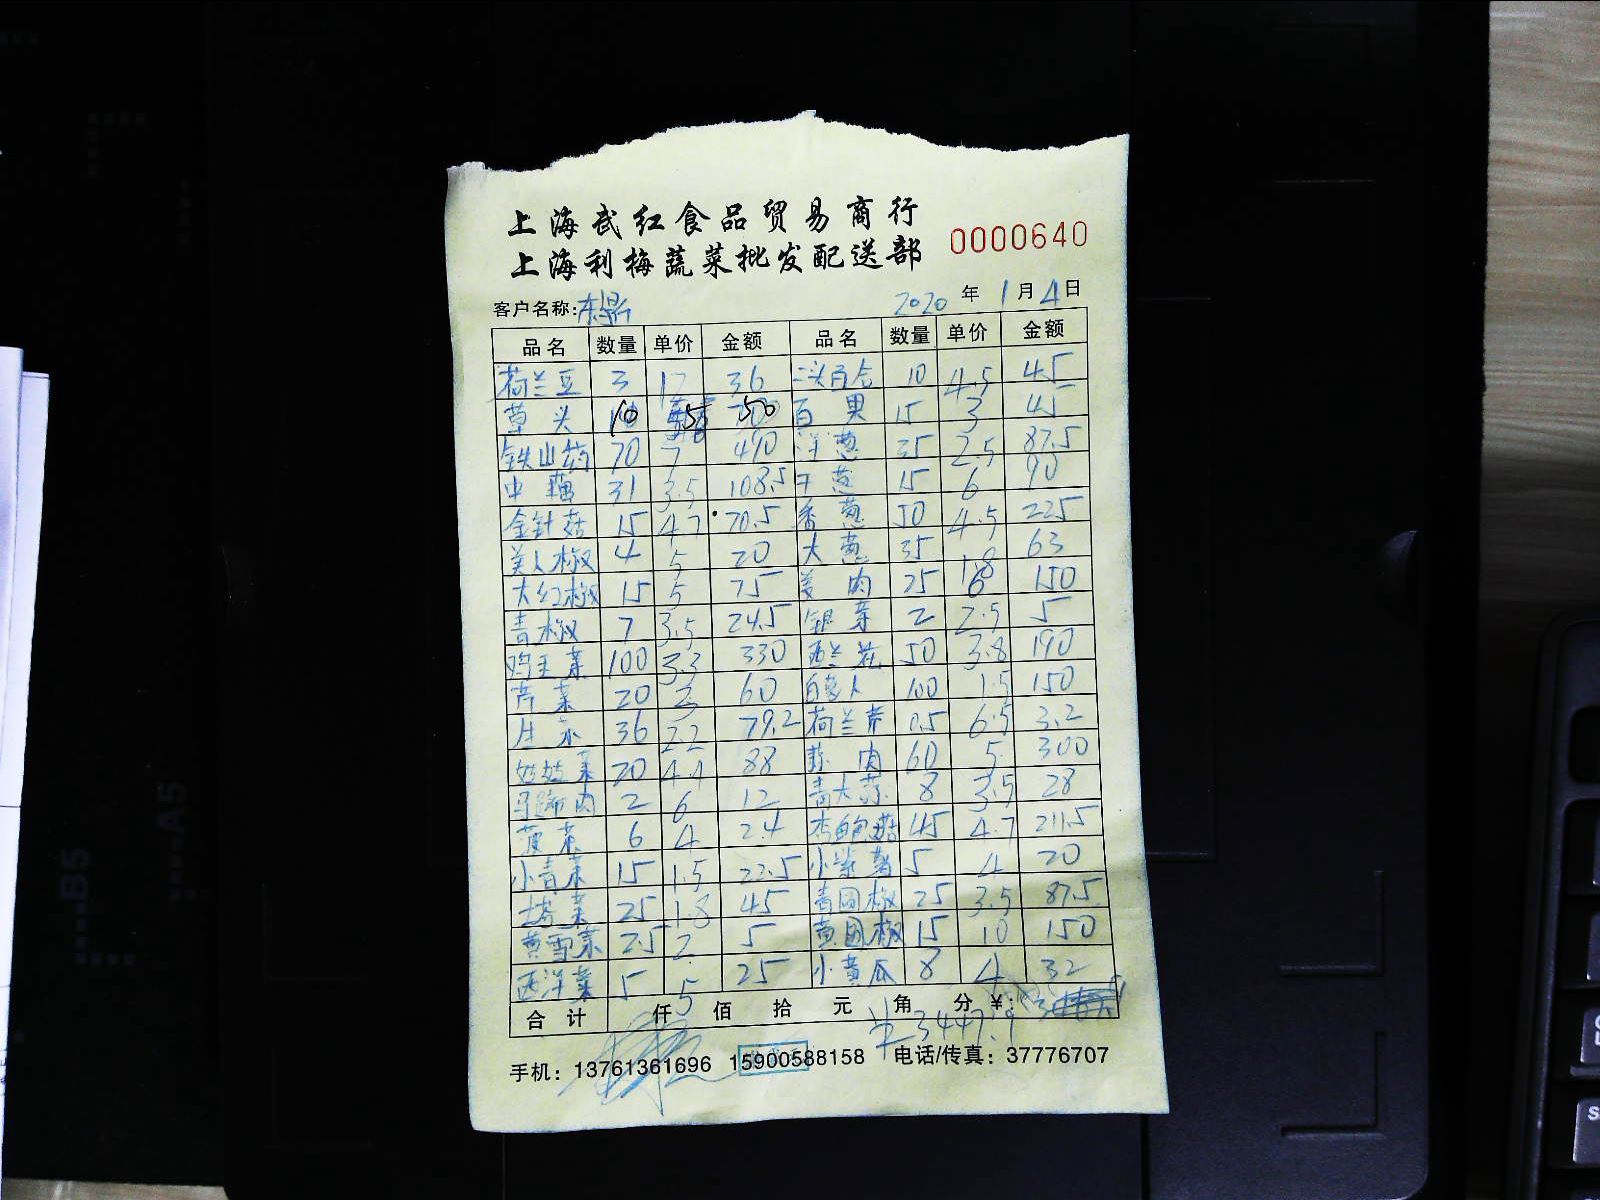 上海武红食品贸易商行
上海利梅蔬菜批发配送部 0000640
客户名称: 东鼎 2020 年 1 月 4 日
品名 数量 单价 金额 品名 数量 单价 金额
荷兰豆 3 12 36 二头百合 10 4.5 45
草头 10 5 50 百果 15 3 45
铁山药 70 7 490 洋葱 35 2.5 87.5
中藕 31 3.5 108.5 干葱 15 6 90
金针菇 15 4.7 70.5 香葱 50 4.5 225
美人椒 4 5 20 大葱 35 1.8 63
大红椒 15 5 75 姜肉 25 6 150
青椒 7 3.5 24.5 银芽 2 2.5 5
鸡毛菜 100 3.3 330 西兰花 50 3.8 190
芹菜 20 3 60 100 1.5 150
生菜 36 2.2 79.2 荷兰芹 0.5 6.5 3.2
娃娃菜 20 4.4 88 蒜肉 60 5 300
马蹄肉 2 6 12 青大蒜 8 3.5 28
菠菜 6 4 24 杏鲍菇 45 4.7 211.5
小青菜 15 1.5 22.5 小紫薯 5 4 20
塔菜 25 1.8 45 青圆椒 25 3.5 87.5
黄雪菜 2.5 2 5 黄圆椒 15 10 150
西洋菜 5 5 25 小黄瓜 8 4 32
合计 仟 佰 拾 元 角 分 ¥: 3447.9
手机: 13761361696 15900588158 电话/传真: 37776707